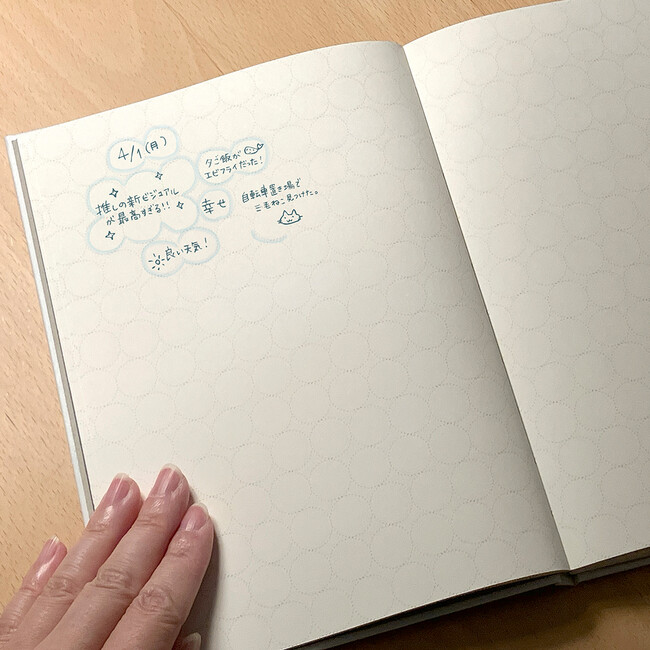 4/1(月)
夕ご飯が
エビフライだった!
推しの新ビジュアル
が最高すぎる!!
幸せ
自転車置き場で
三毛ねこ見つけた。
良い天気!